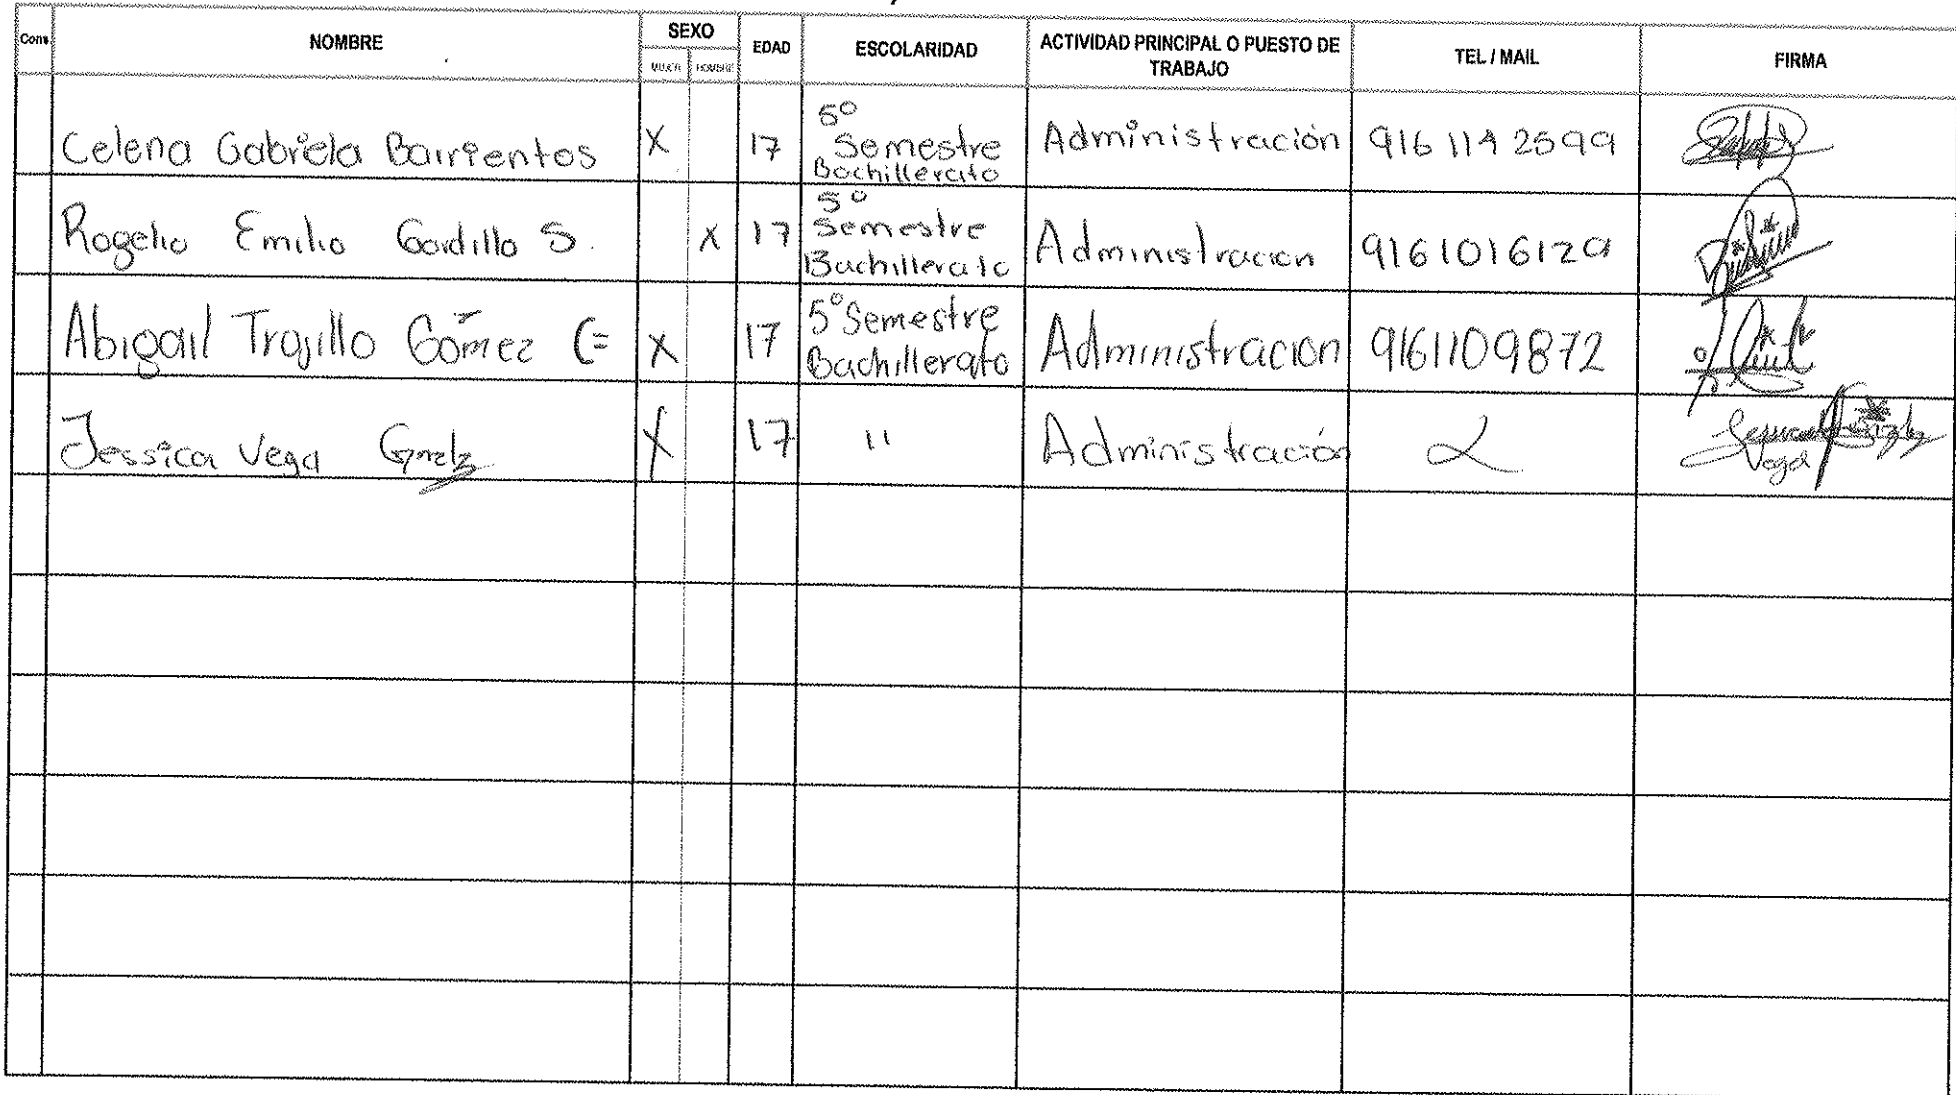 Cons. NOMBRE SEXO EDAD ESCOLARIDAD ACTIVIDAD PRINCIPAL O PUESTO DE TRABAJO TEL / MAIL FIRMA
MUJER HOMBRE
Celena Gabriela Barrientos X 17 5º Semestre Bachillerato Administración 916 114 2599
Rogelio Emilio Gordillo S. X 17 5º Semestre Bachillerato Administracion 9161016129
Abigail Trujillo Gómez (= X 17 5º Semestre Bachillerato Administracion 9161109872
Jessica Vega X 17 " Administración
Vega